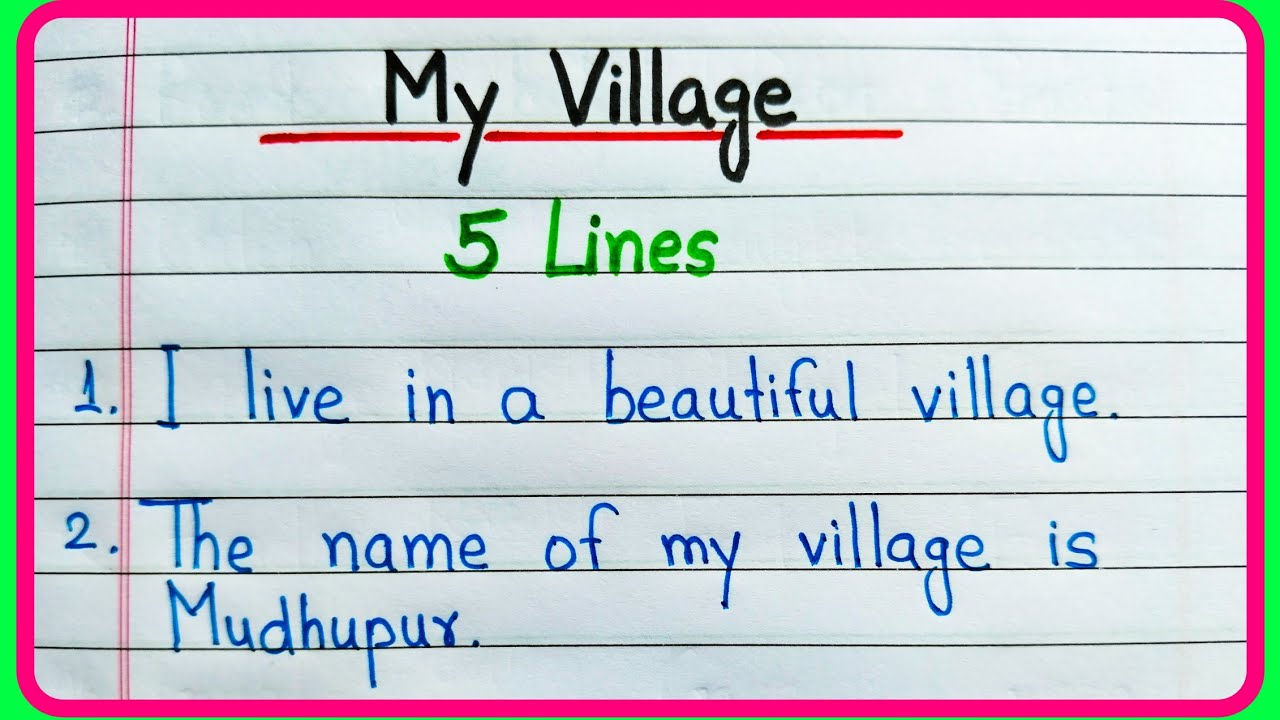 My Village
5 Lines
1. I live in a beautiful village.
2. The name of my village is
Mudhupur.